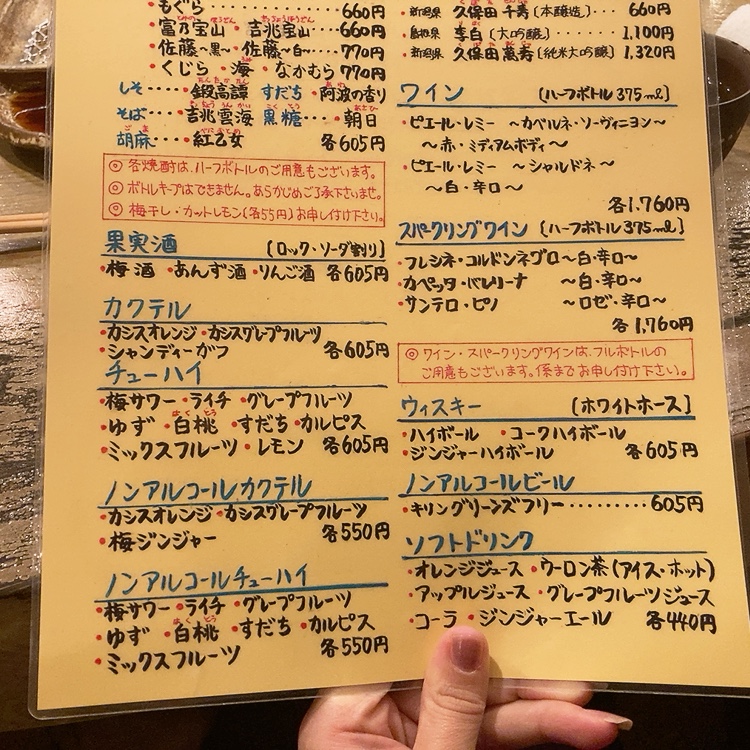 もぐら ‥‥‥‥ 660円
富乃宝山・吉兆宝山‥‥660円
佐藤〜黒〜 佐藤〜白〜‥‥770円
くじら ・海 ・なかむら 770円
しそ‥‥鍛高譚 すだち・阿波の香り
そば‥‥吉兆雲海 黒糖‥‥朝日
胡麻‥‥紅乙女 各605円
◎ 各焼酎は、ハーフボトルのご用意もございます。
◎ ボトルキープはできません。あらかじめご了承下さいませ。
◎ 梅干し・カットレモン(各55円)お申し付け下さい。
果実酒 (ロック・ソーダ割り)
・梅酒 ・あんず酒 ・りんご酒 各605円
カクテル
・カシスオレンジ ・カシスグレープフルーツ
・シャンディーガフ 各605円
チューハイ
・梅サワー ・ライチ ・グレープフルーツ
・ゆず ・白桃 ・すだち ・カルピス
・ミックスフルーツ ・レモン 各605円
ノンアルコールカクテル
・カシスオレンジ ・カシスグレープフルーツ
・梅ジンジャー 各550円
ノンアルコールチューハイ
・梅サワー ・ライチ ・グレープフルーツ
・ゆず ・白桃 ・すだち ・カルピス
・ミックスフルーツ 各550円
・新潟県 久保田 千寿〔本醸造〕‥‥ 660円
・島根県 李白〔大吟醸〕‥‥‥‥ 1,100円
・新潟県 久保田 萬寿〔純米大吟醸〕 1,320円
ワイン (ハーフボトル 375ml)
・ピエール・レミー 〜カベルネ・ソーヴィニヨン〜
〜赤・ミディアムボディ〜
・ピエール・レミー 〜シャルドネ〜
〜白・辛口〜
各1,760円
スパークリングワイン (ハーフボトル 375ml)
・フレシネ・コルドンネグロ 〜白・辛口〜
・カペッタ・バレリーナ 〜白・辛口〜
・サンテロ・ピノ 〜ロゼ・辛口〜
各1,760円
◎ ワイン・スパークリングワインは、フルボトルの
ご用意もございます。係までお申し付け下さい。
ウィスキー 〔ホワイトホース〕
・ハイボール ・コークハイボール
・ジンジャーハイボール 各605円
ノンアルコールビール
・キリングリーンズフリー‥‥‥‥‥605円
ソフトドリンク
・オレンジジュース ・ウーロン茶(アイス・ホット)
・アップルジュース ・グレープフルーツジュース
・コーラ ・ジンジャーエール 各440円